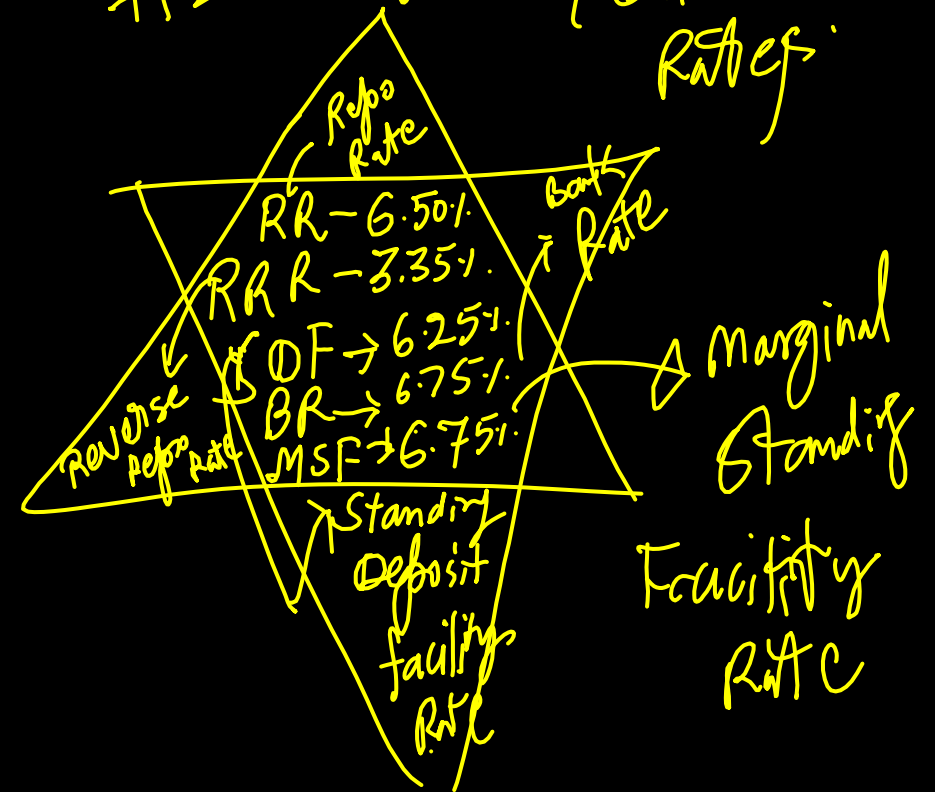 Rates
Repo
Rate
Bank
Rate
RR - 6.50%
RRR - 3.35%.
SDF → 6.25%.
BR → 6.75%.
MSF → 6.75%.
Reverse
Repo Rate
Marginal
Standing
Facility
Rate
Standing
Deposit
facility
Rate